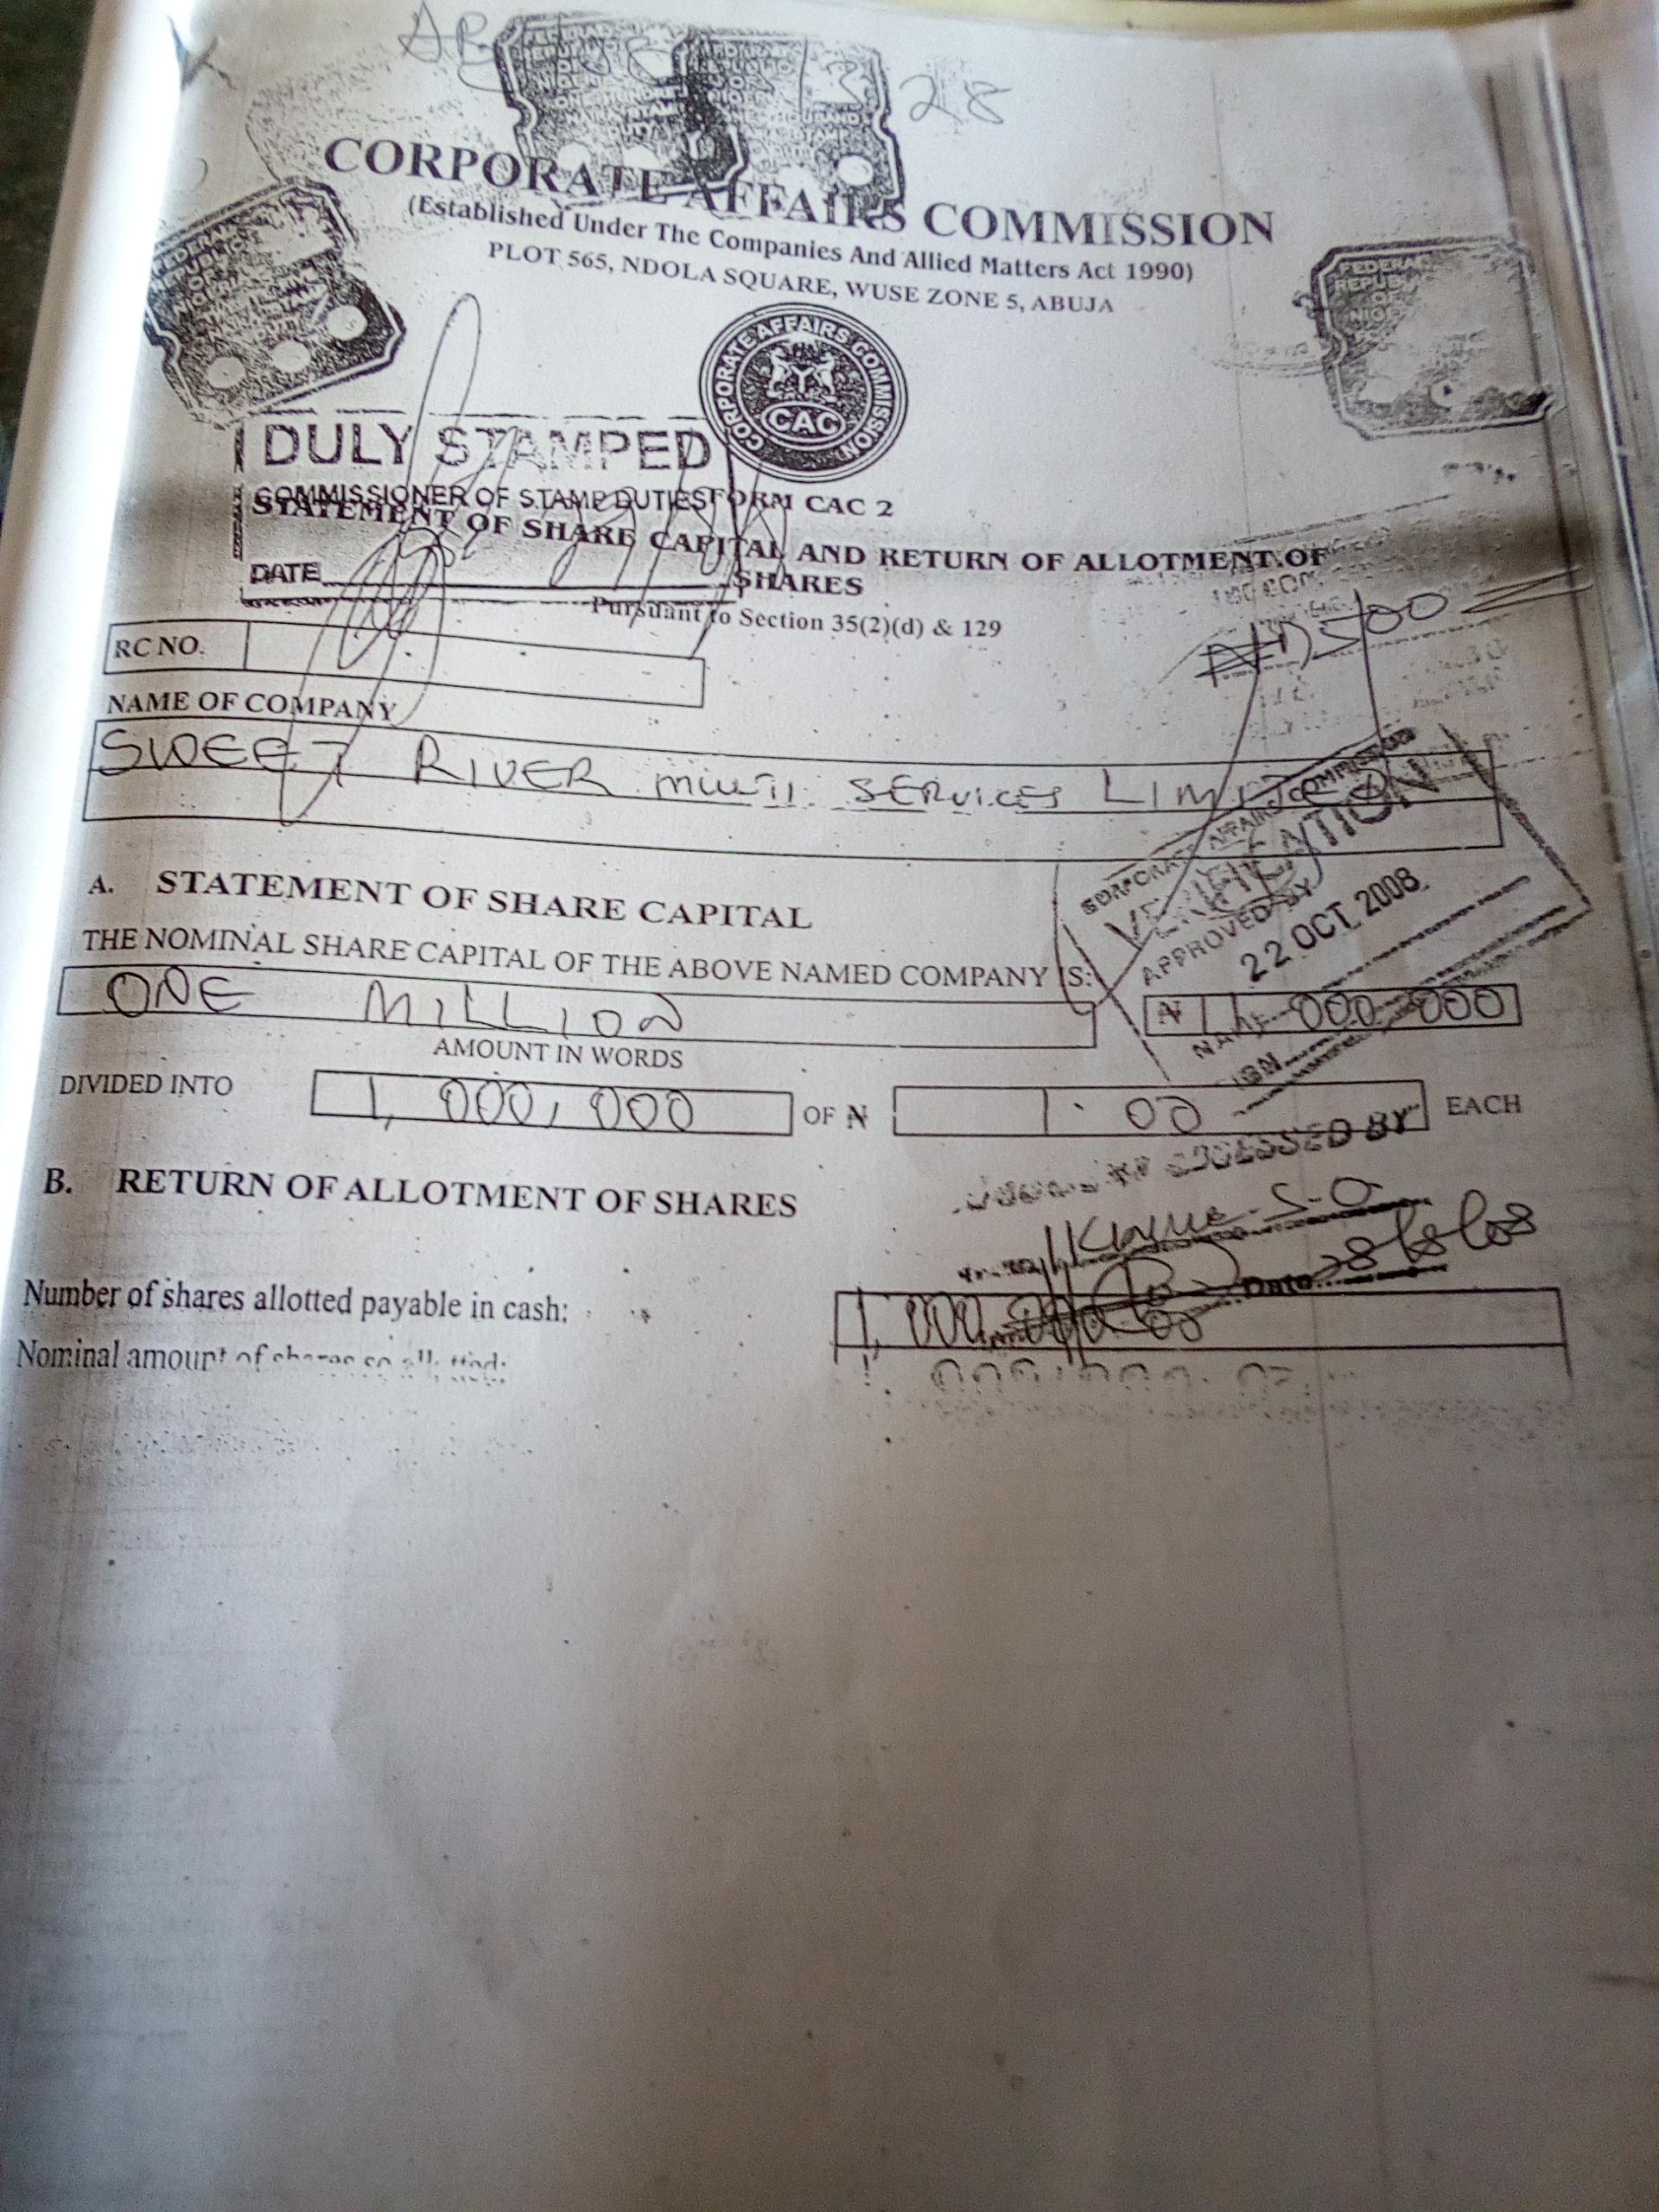 28
CORPORATE AFFAIRS COMMISSION
(Established Under The Companies And Allied Matters Act 1990)
PLOT 565, NDOLA SQUARE, WUSE ZONE 5, ABUJA
FEDERAL REPUBLIC OF
CORPORATE AFFAIRS COMMISSION
CAC
DULY STAMPED
COMMISSIONER OF STAMP DUTIES
FORM CAC 2
STATEMENT OF SHARE CAPITAL AND RETURN OF ALLOTMENT OF
SHARES
DATE
Pursuant to Section 35(2)(d) & 129
RC NO.
NAME OF COMPANY
SWEET RIVER MULTI SERVICES LIMITED
CORPORATE AFFAIRS COMMISSION
VERIFICATION
APPROVED BY
22 OCT 2008
A. STATEMENT OF SHARE CAPITAL
THE NOMINAL SHARE CAPITAL OF THE ABOVE NAMED COMPANY IS:
ONE MILLION
₦ 1,000,000
NAME
SIGN
AMOUNT IN WORDS
DIVIDED INTO 1,000,000 OF ₦ 1.00 EACH
ASSESSED BY
B. RETURN OF ALLOTMENT OF SHARES
Date
Number of shares allotted payable in cash: 1,000,000.00
Nominal amount of shares so allotted: